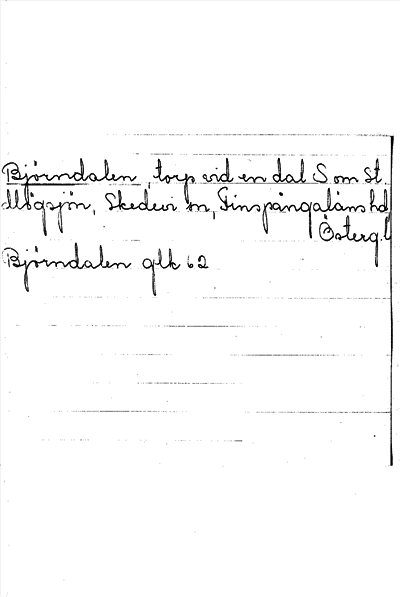 Björndalen, torp vid en dal S om St.
Älögsjön, Skedevi sn, Finspångaläns hd
Österg.l
Björndalen glk 62